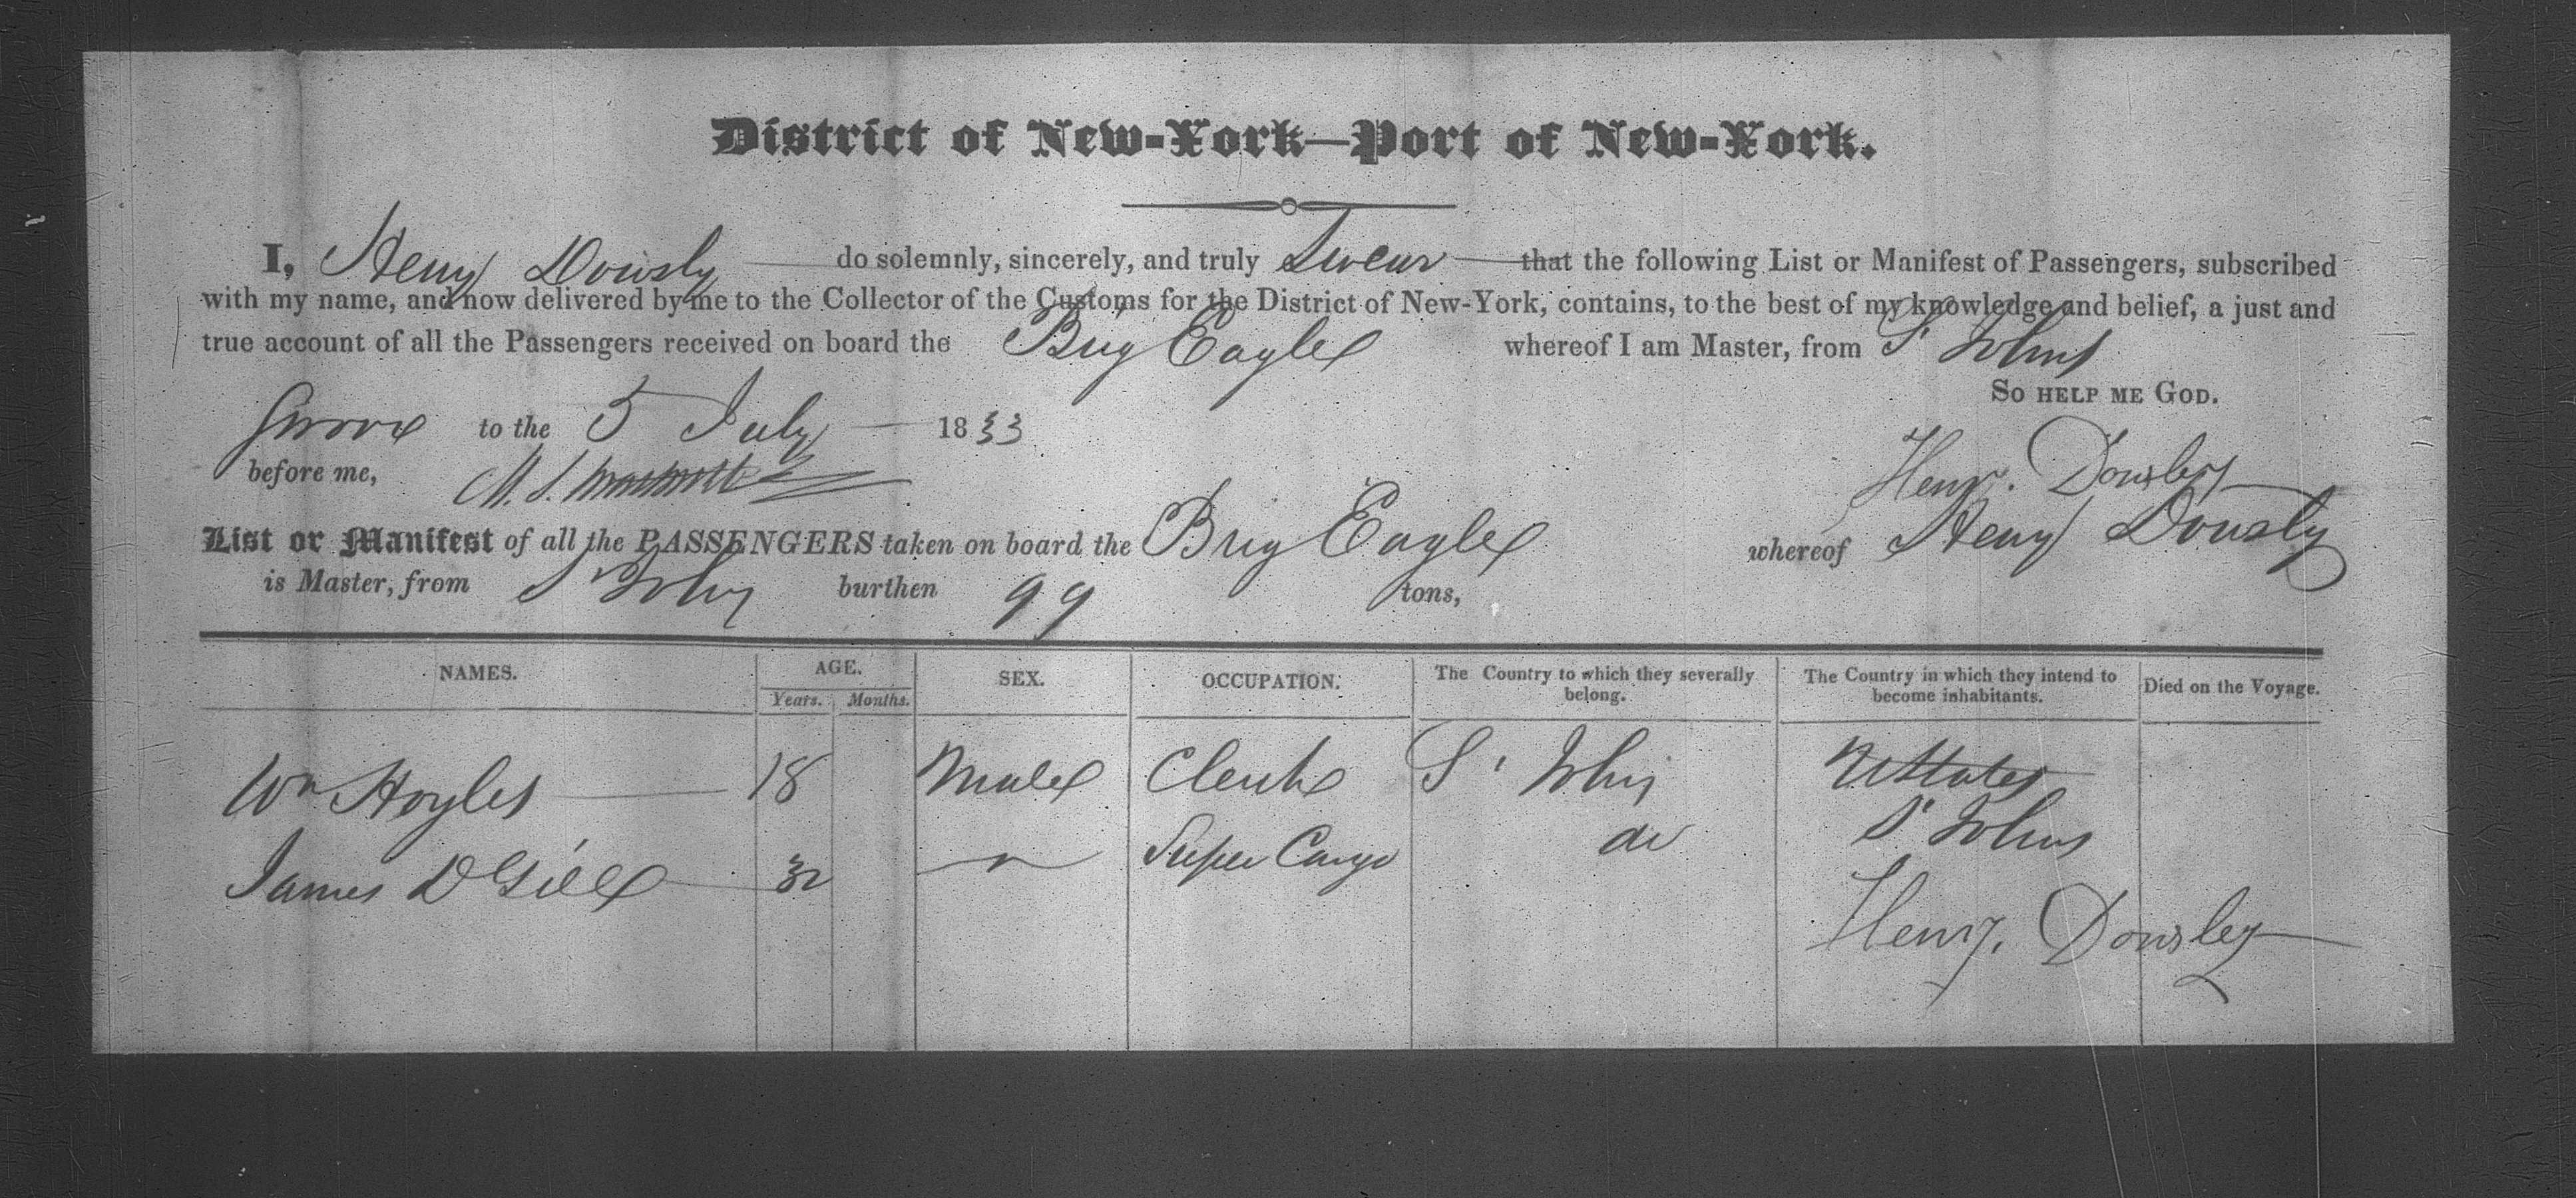 District of New-York—Port of New-York.
I, Henry Dowsly do solemnly, sincerely, and truly Swear that the following List or Manifest of Passengers, subscribed
with my name, and now delivered by me to the Collector of the Customs for the District of New-York, contains, to the best of my knowledge and belief, a just and
true account of all the Passengers received on board the Brig Eagle whereof I am Master, from St Johns
So help me God.
Sworn to the 5 July 1833
before me, M. S. Henry. Dowsley
List or Manifest of all the PASSENGERS taken on board the Brig Eagle whereof Henry Dowsly
is Master, from St Johns burthen 99 tons,
NAMES. AGE. SEX. OCCUPATION. The Country to which they severally belong. The Country in which they intend to become inhabitants. Died on the Voyage.
Years. Months.
Wm Hoyles 18 Male Clerk St Johns U States
St Johns
James D Gill 32 " Super Cargo do
Henry. Dowsley